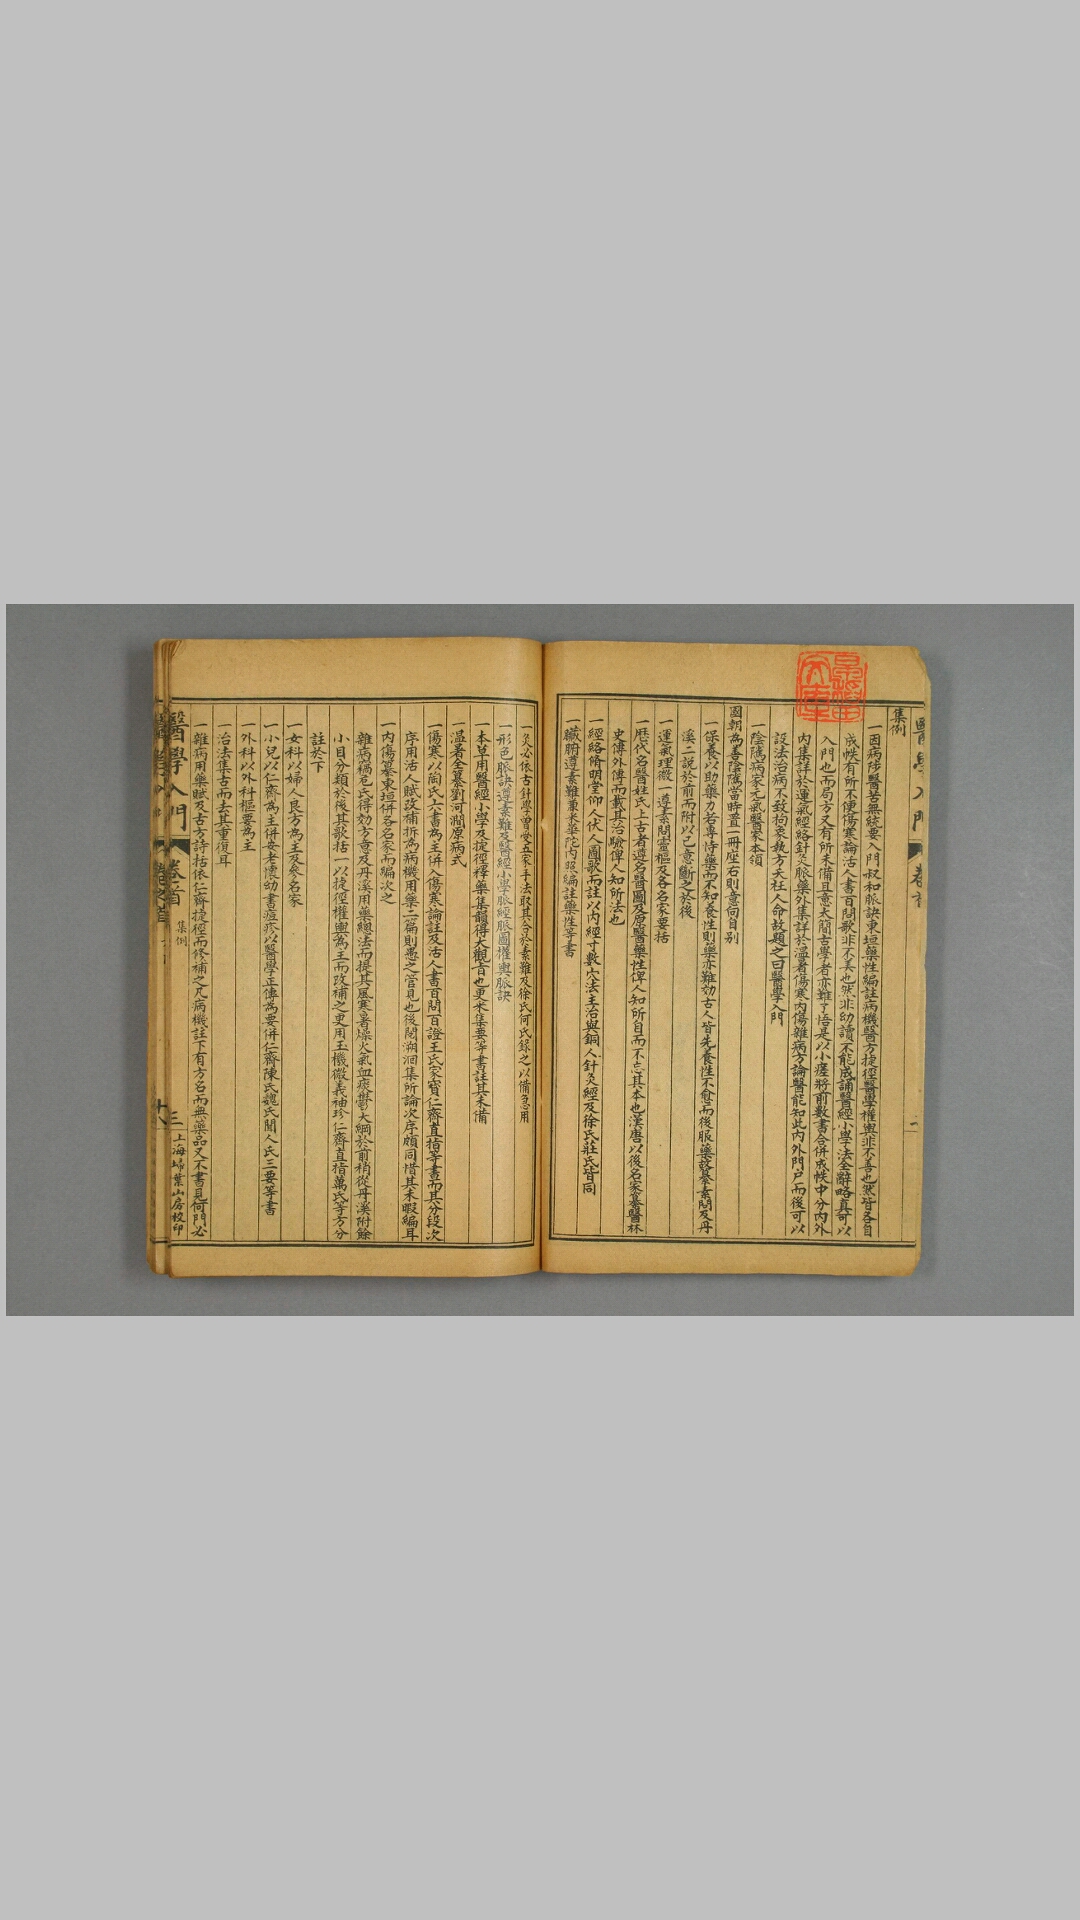 集例
一因病陟醫苦無統要入門叔和脈訣東垣藥性編註病機醫方捷徑醫學權輿非不善也然皆各自
成帙有所不便傷寒論活人書百問歌非不美也然非幼讀不能成誦醫經小學法全辭略真可以
入門也而局方又有所未備且意太簡古學者亦難了悟是以小瘥將前數書合併成帙中分內外
內集詳於運氣經絡針灸脈藥外集詳於溫暑傷寒內傷雜病方論醫能知此內外門户而後可以
設法治病不致拘象執方夭枉人命故題之曰醫學入門
一陰隲病家元氣醫家本領
國朝為善陰隲當時置一冊座右則意向自別
一保養以助藥力若專恃藥而不知養性則藥亦難効古人皆先養性不愈而後服藥故纂素問及丹
溪二説於前而附以己意斷之於後
一運氣理微一遵素問靈樞及各名家要括
一歷代名醫姓氏上古者遵名醫圖及原醫藥性俾人知所自而不忘其本也漢唐以後名家纂醫林
史傳外傳而載其治驗俾人知所法也
一經絡脩明堂仰人伏人圖歌而註以內經寸數穴法主治與銅人針灸經及徐氏莊氏皆同
一臟腑遵素難兼釆華陀內照編註藥性等書
一灸必依古針學曾受五家手法取其合於素難及徐氏何氏錄之以備急用
一形色脈訣遵素難及醫經小學脈經脈圖權輿脈訣
一本草用醫經小學及捷徑釋藥集韻得大觀音也更釆集要等書註其未備
一溫暑全纂劉河澗原病式
一傷寒以陶氏六書為主併入傷寒論註及活人書百問百證王氏家寳仁齋直指等書而其分段次
序用活人賦改補拆為病機用藥二篇則愚之管見也後閱溯洄集所論次序頗同惜其未暇編耳
一內傷纂東垣併各名家而編次之
一雜病禍危氏得効方意及丹溪用藥總法而提其風寒暑燥火氣血痰鬱大綱於前稍從丹溪附餘
小目分類於後其歌括一以捷徑權輿為主而改補之更用玉機微義袖珍仁齋直指萬氏等方分
註於下
一女科以婦人良方為主及參名家
一小兒以仁齋為主併安老懷幼書痘疹以醫學正傳為要併仁齋陳氏魏氏聞人氏三要等書
一外科以外科樞要為主
一治法集古而去其重復耳
一雜病用藥賦及古方詩括依仁齋捷徑而修補之凡病機註下有方名而無藥品又不書見何門必
醫學入門
卷首
集例
三
上海埽葉山房校印